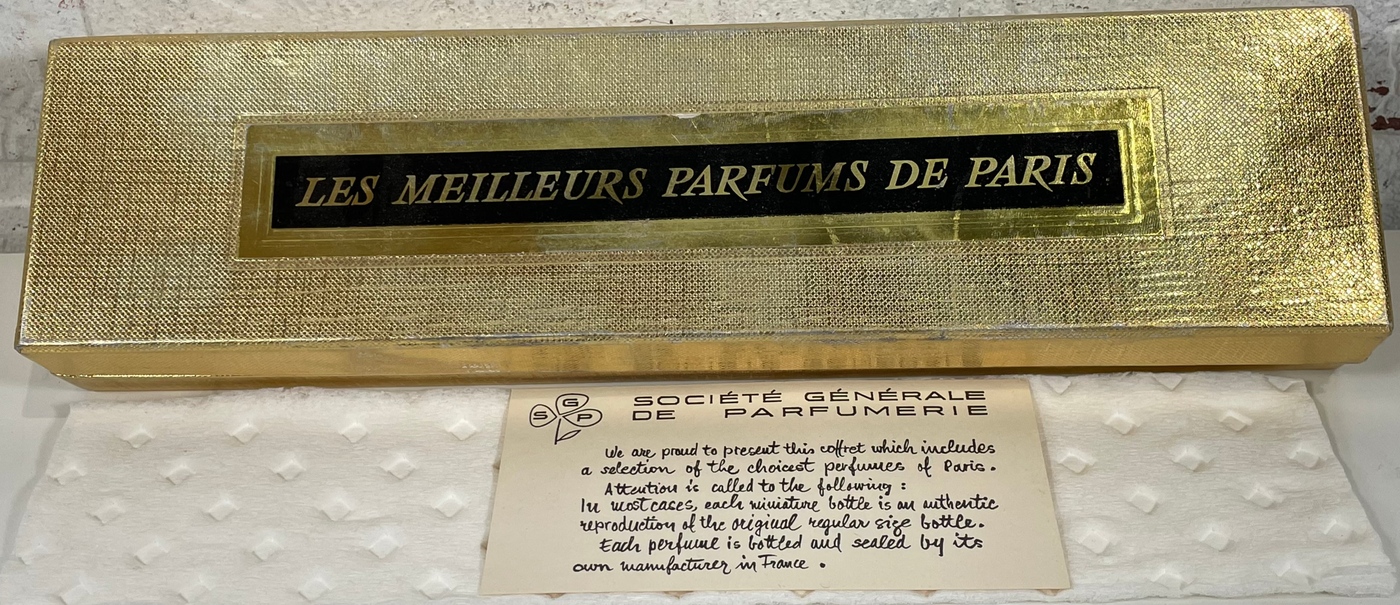 LES MEILLEURS PARFUMS DE PARIS
SGP
SOCIÉTÉ GÉNÉRALE
DE PARFUMERIE
We are proud to present this coffret which includes
a selection of the choicest perfumes of Paris.
Attention is called to the following:
In most cases, each miniature bottle is an authentic
reproduction of the original regular size bottle.
Each perfume is bottled and sealed by its
own manufacturer in France.